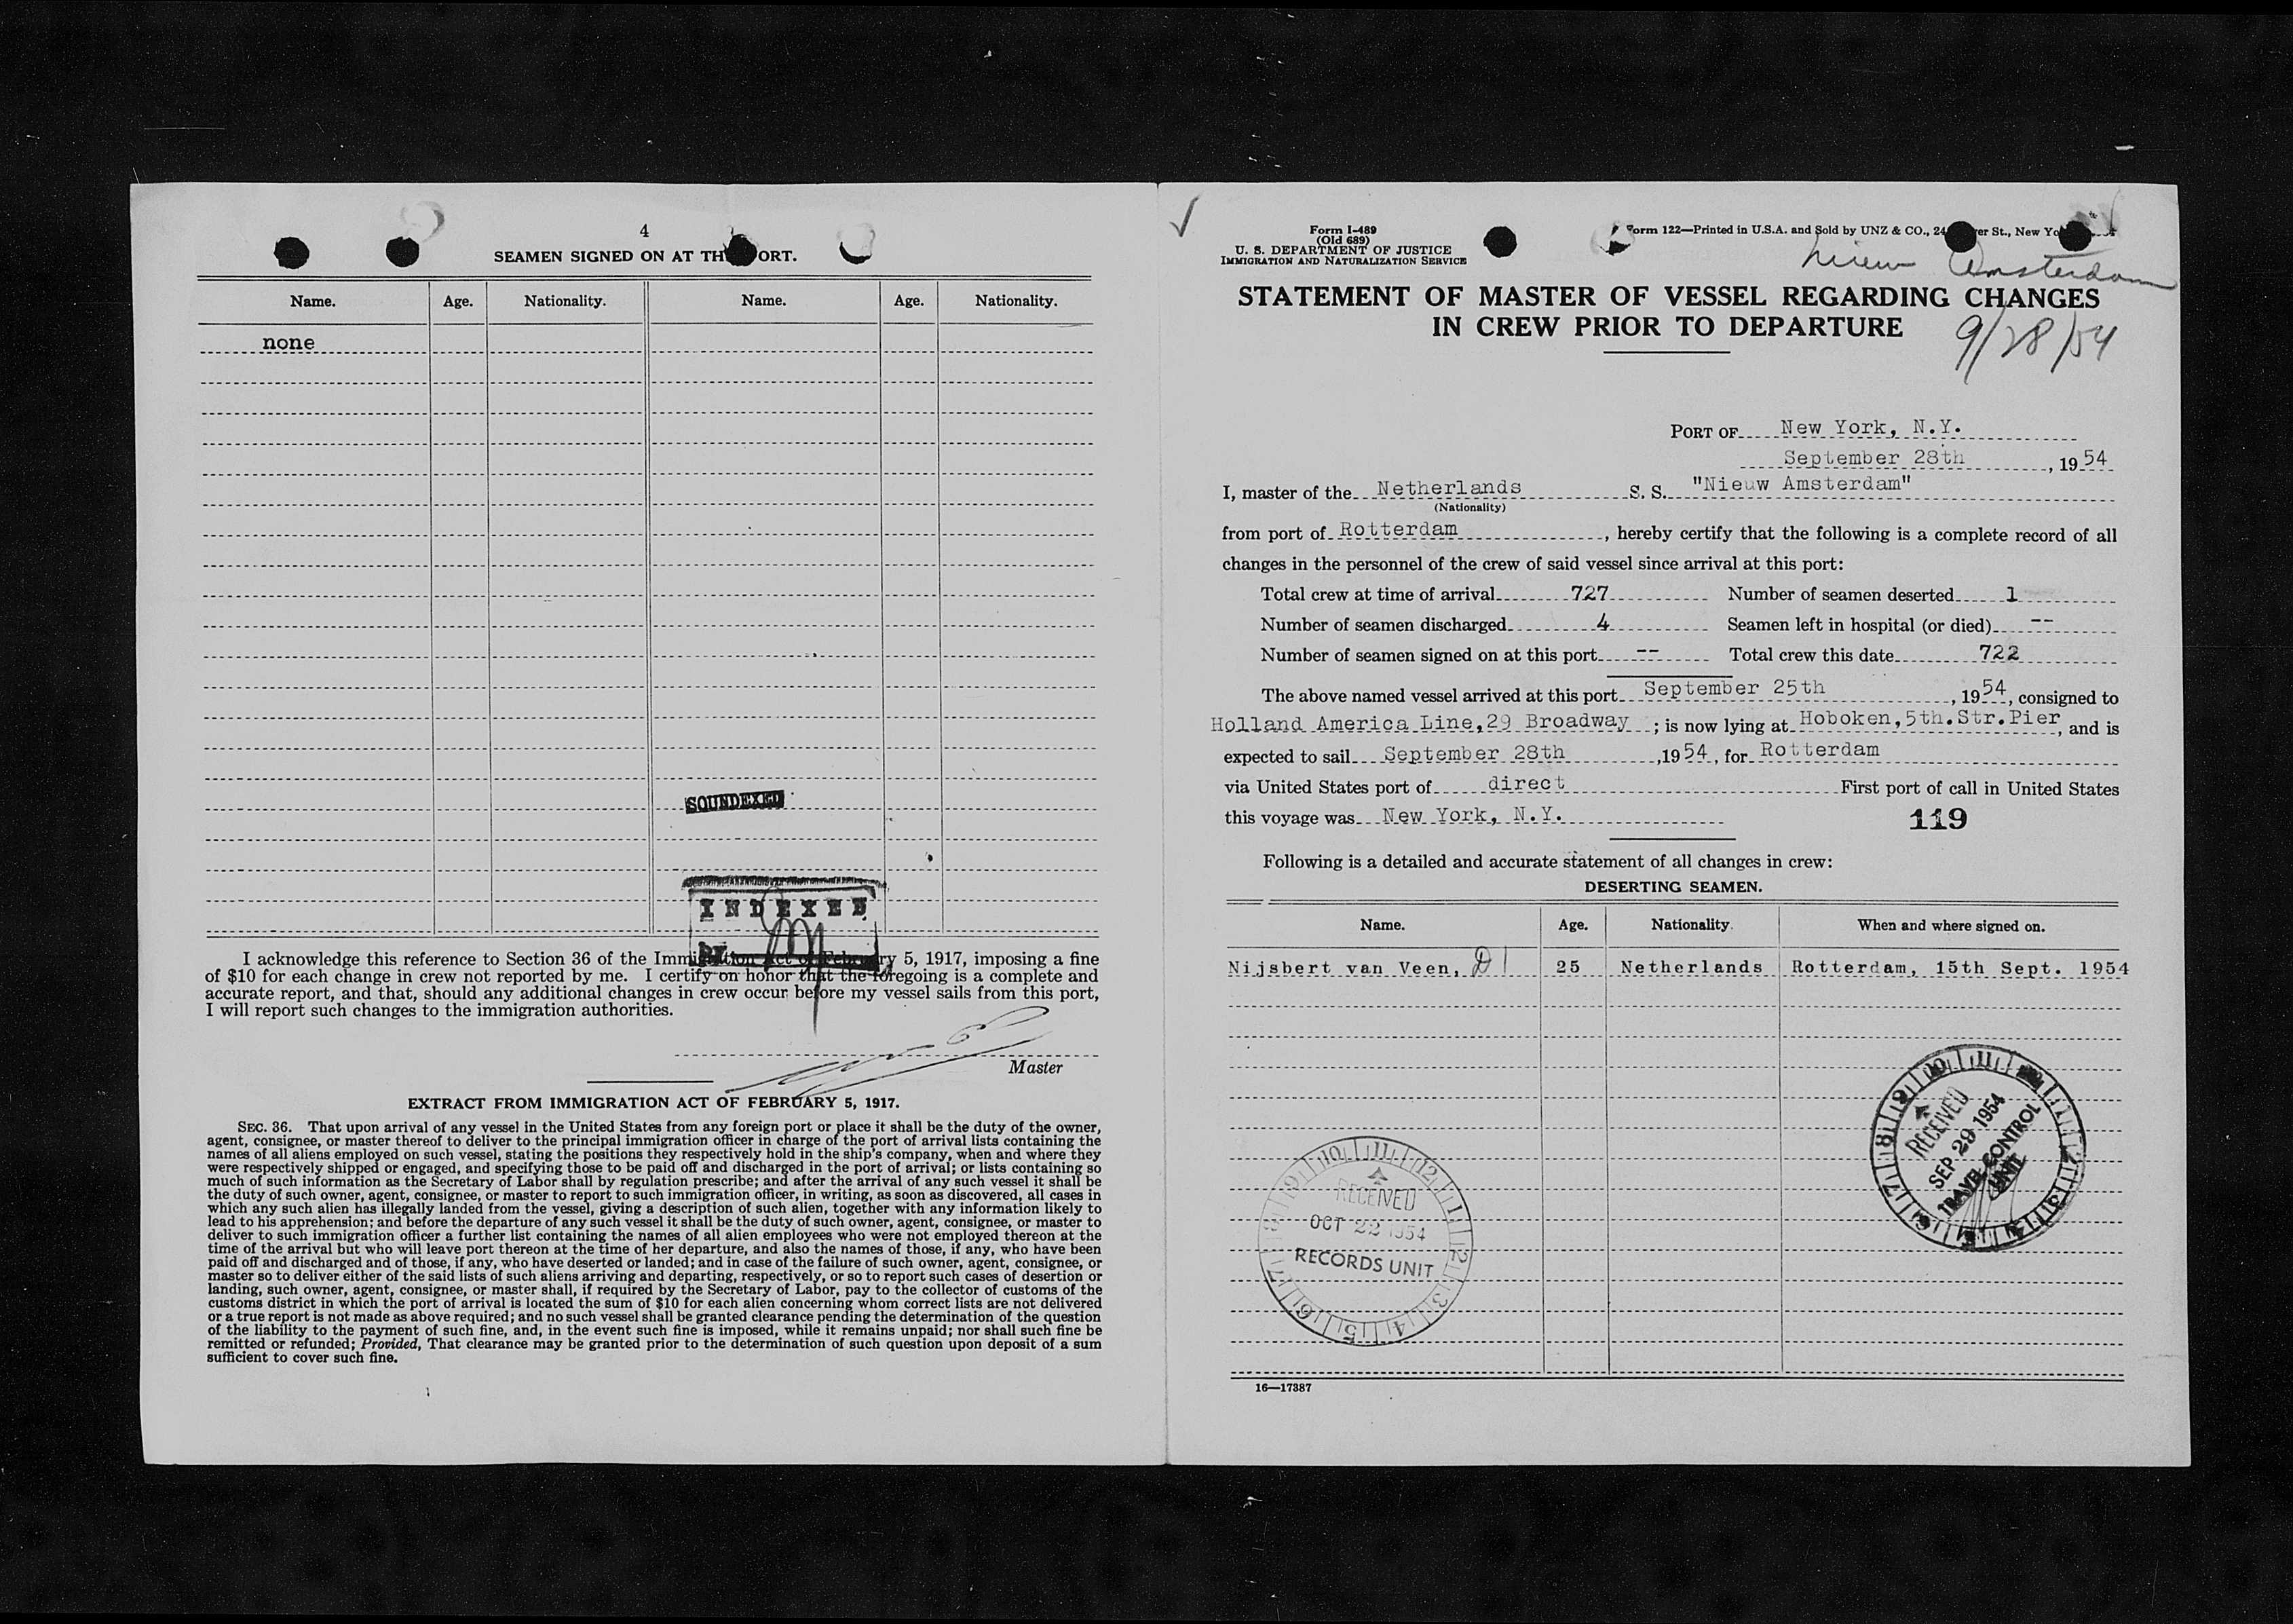 4
SEAMEN SIGNED ON AT TH ORT.
Name. Age. Nationality. Name. Age. Nationality.
none
SOUNDEXED
INDEXED
by
I acknowledge this reference to Section 36 of the Immigration Act of February 5, 1917, imposing a fine
of $10 for each change in crew not reported by me. I certify on honor that the foregoing is a complete and
accurate report, and that, should any additional changes in crew occur before my vessel sails from this port,
I will report such changes to the immigration authorities.
Master
EXTRACT FROM IMMIGRATION ACT OF FEBRUARY 5, 1917.
SEC. 36. That upon arrival of any vessel in the United States from any foreign port or place it shall be the duty of the owner,
agent, consignee, or master thereof to deliver to the principal immigration officer in charge of the port of arrival lists containing the
names of all aliens employed on such vessel, stating the positions they respectively hold in the ship's company, when and where they
were respectively shipped or engaged, and specifying those to be paid off and discharged in the port of arrival; or lists containing so
much of such information as the Secretary of Labor shall by regulation prescribe; and after the arrival of any such vessel it shall be
the duty of such owner, agent, consignee, or master to report to such immigration officer, in writing, as soon as discovered, all cases in
which any such alien has illegally landed from the vessel, giving a description of such alien, together with any information likely to
lead to his apprehension; and before the departure of any such vessel it shall be the duty of such owner, agent, consignee, or master to
deliver to such immigration officer a further list containing the names of all alien employees who were not employed thereon at the
time of the arrival but who will leave port thereon at the time of her departure, and also the names of those, if any, who have been
paid off and discharged and of those, if any, who have deserted or landed; and in case of the failure of such owner, agent, consignee, or
master so to deliver either of the said lists of such aliens arriving and departing, respectively, or so to report such cases of desertion or
landing, such owner, agent, consignee, or master shall, if required by the Secretary of Labor, pay to the collector of customs of the
customs district in which the port of arrival is located the sum of $10 for each alien concerning whom correct lists are not delivered
or a true report is not made as above required; and no such vessel shall be granted clearance pending the determination of the question
of the liability to the payment of such fine, and, in the event such fine is imposed, while it remains unpaid; nor shall such fine be
remitted or refunded; Provided, That clearance may be granted prior to the determination of such question upon deposit of a sum
sufficient to cover such fine.
Form I-489
(Old 689)
U. S. DEPARTMENT OF JUSTICE
IMMIGRATION AND NATURALIZATION SERVICE
Form 122—Printed in U.S.A. and Sold by UNZ & CO., 24 er St., New Yo
Nieuw Amsterdam
STATEMENT OF MASTER OF VESSEL REGARDING CHANGES
IN CREW PRIOR TO DEPARTURE
9/28/54
PORT OF New York, N.Y.
September 28th, 1954
I, master of the Netherlands S. S. "Nieuw Amsterdam"
(Nationality)
from port of Rotterdam, hereby certify that the following is a complete record of all
changes in the personnel of the crew of said vessel since arrival at this port:
Total crew at time of arrival 727 Number of seamen deserted 1
Number of seamen discharged 4 Seamen left in hospital (or died) --
Number of seamen signed on at this port -- Total crew this date 722
The above named vessel arrived at this port September 25th, 1954, consigned to
Holland America Line,29 Broadway ; is now lying at Hoboken,5th.Str.Pier, and is
expected to sail September 28th ,1954, for Rotterdam
via United States port of direct First port of call in United States
this voyage was New York, N.Y.
119
Following is a detailed and accurate statement of all changes in crew:
DESERTING SEAMEN.
Name. Age. Nationality. When and where signed on.
Nijsbert van Veen, D1 25 Netherlands Rotterdam, 15th Sept. 1954
RECEIVED
SEP 29 1954
TRAVEL CONTROL
UNIT
RECEIVED
OCT 22 1954
RECORDS UNIT
16—17387